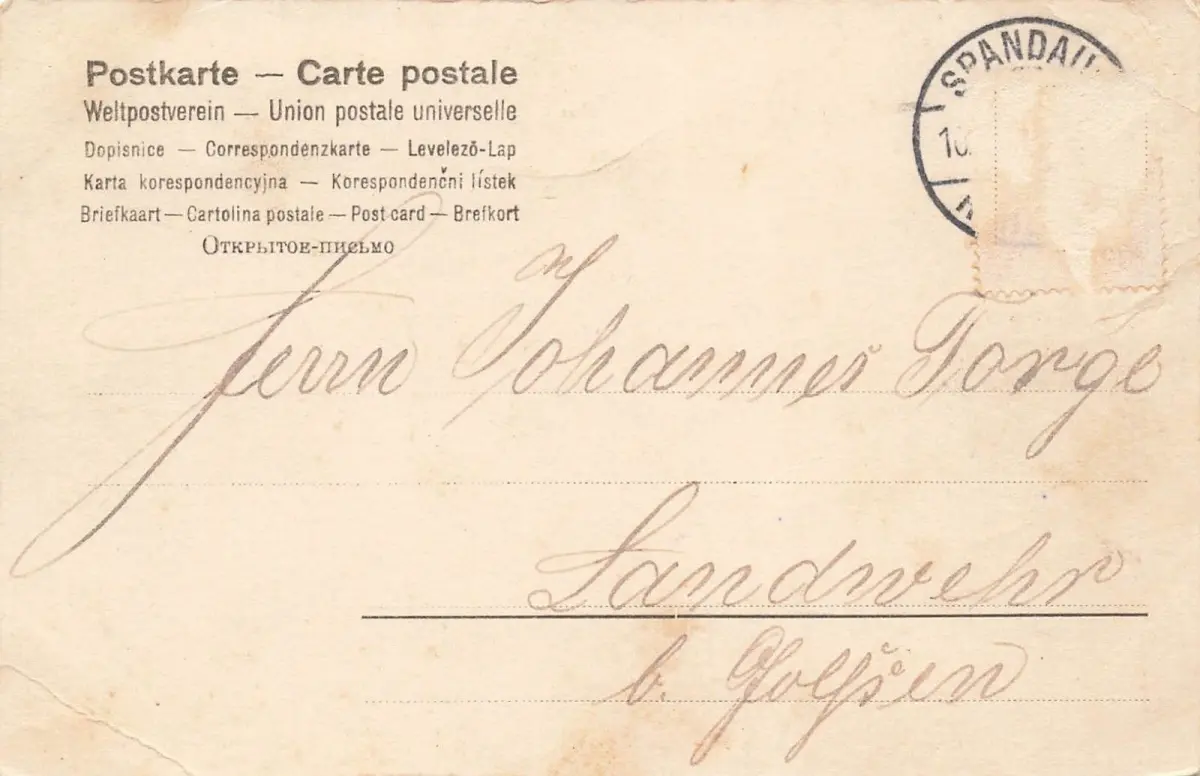 Postkarte — Carte postale
Weltpostverein — Union postale universelle
Dopisnice — Correspondenzkarte — Levelező-Lap
Karta korespondencyjna — Korespondenčni lístek
Briefkaart — Cartolina postale — Post card — Brefkort
Открытое-письмо
SPANDAU
10
Herrn Johannes Torgé
Landwehr
b. Golßen